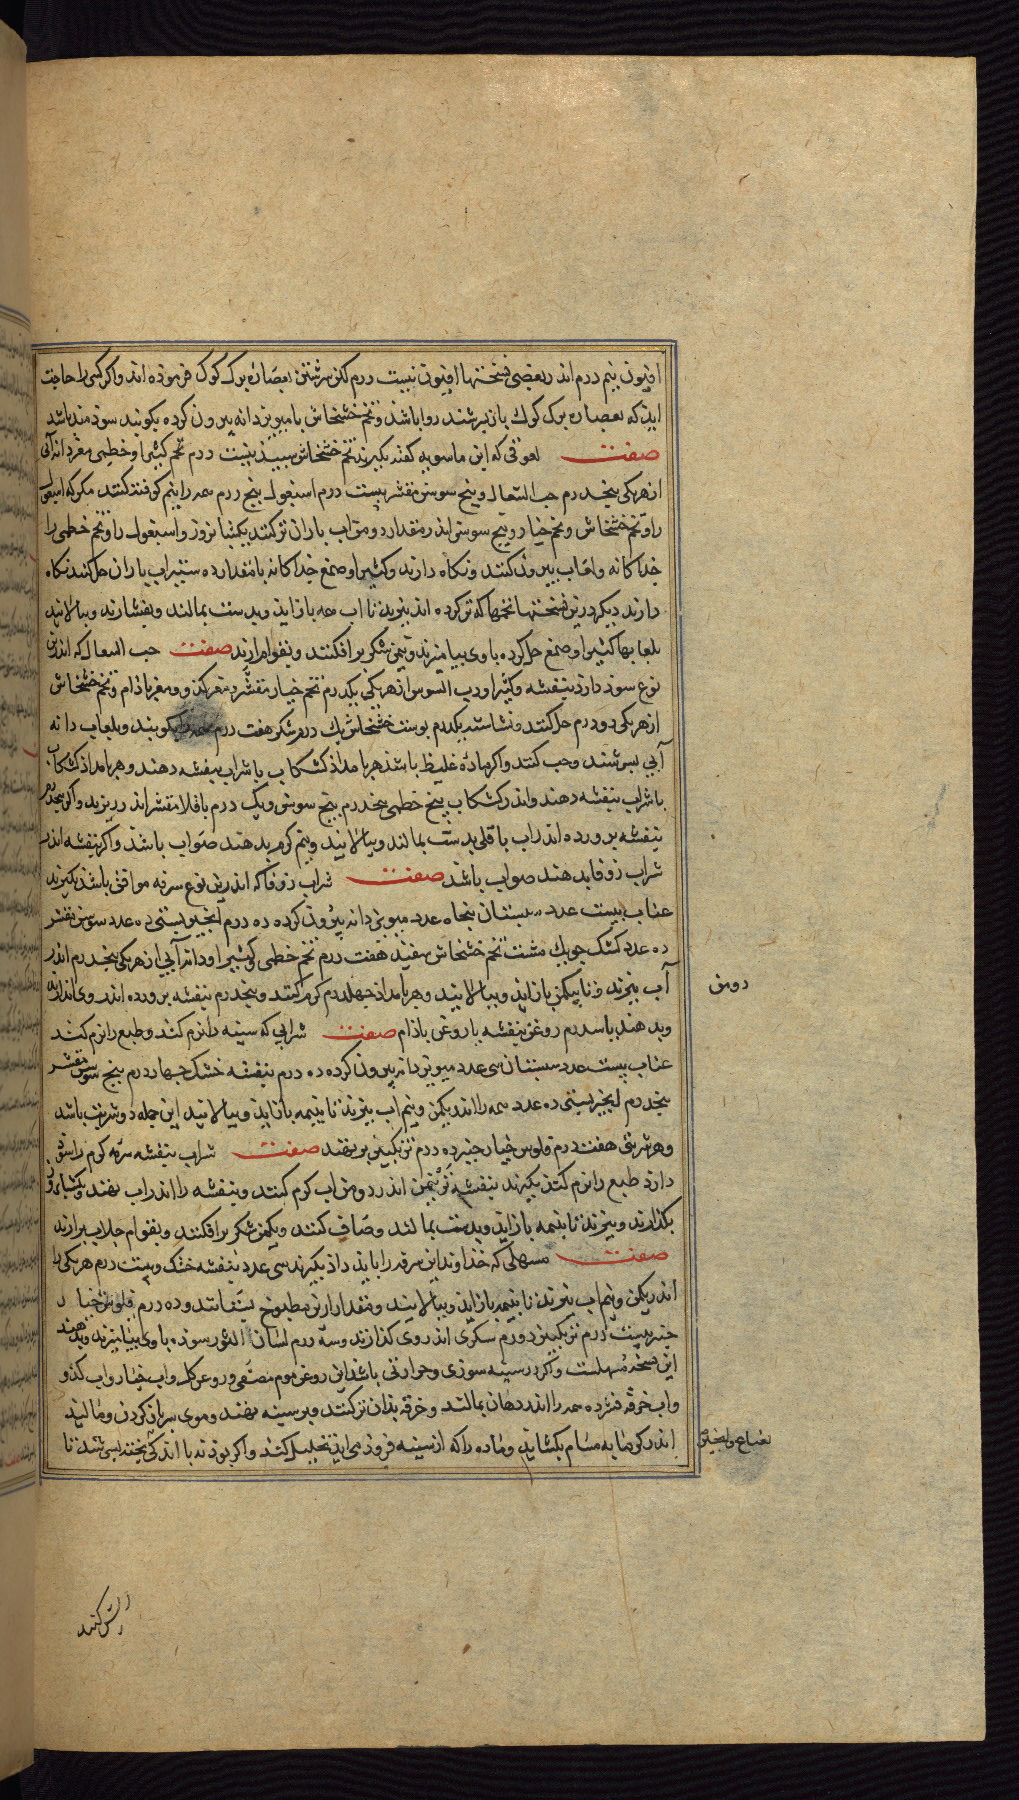 افیون نیم درم اندر بعضی نسختها افیون نیست درم لکن سرشتن بعصارهٔ برک کوک فرموده اند واکر کسی را حاجت
اید که بعصاره برک کوک باز سرشند روا باشد وتخم خشخاش با مویز دانه بیرون کرده بکوبند سودمند باشد
صفت لعوقی که ابن ماسویه کفته بکیرند تخم خشخاش سپید بیست درم تخم کتیرا وخطمی مغز دانه آبی
از هر یکی پنجدرم حب السعال وبیخ سوسن مقشر بیست درم اسبغول پنج درم همه را نیم کوفته کنند مکر که اسبغول
را وتخم خشخاش وتخم خیار وبیخ سوسن اندر مقدار دو من اب باران تر کنند یکشبانروز واسبغول را وتخم خطمی را
جداکانه ولعاب بیرون کنند ونکاه دارند وکتیرا وصمغ جداکانه بامقدار ده ستیر اب باران حل کنند نکاه
دارند دیکر درین نسختها تخمها که تر کرده اند بپزند تا اب مه باز اید وبدست بمالند وبفشارند وبپالایند
بلعابها کتیرا وصمغ حل کرده باوی بیامیزند ونیمن شکر برافکنند وبقوام ارند صفت حب السعال که اندرین
نوع سود دارد بنفشه وکتیرا ورب السوس از هر یکی یکدرم تخم خیار مقشر ومغز کدو ومغز باذام وتخم خشخاش
از هر یکی دو درم حل کنند ونشاسته یکدرم پوست خشخاش یک درم شکر هفت درم همه را بکوبند وبلعاب دانه
آبی بسرشند وحب کنند واکر ماده غلیظ باشد هر بامداد کشکاب باشراب بنفشه دهند وهر بامداد کشکاب
باشراب بنفشه دهند واندر کشکاب بیخ خطمی پنجدرم بیخ سوسن ویک درم باقلا مقشر اندر ریزند واکر پنجدرم
بنفشه پرورده اندر اب باقلی بدست بمالند وبپالایند ونیم کرم بدهند صواب باشد واکر بنفشه اندر
شراب زوفا بدهند صواب باشد صفت شراب زوفا که اندرین نوع سرفه موافق باشد بکیرند
عناب بیست عدد سبستان پنجاه عدد مویز دانه بیرون کرده ده درم انجیر بستی ده عدد سوسن مقشر
ده عدد کشک جو یک مشت تخم خشخاش سفید هفت درم تخم خطمی وکتیرا ودانه آبی از هر یکی پنجدرم اندر
دو من
آب بپزند وتا بیکمن باز اید وبپالایند وهر بامداد چهلدرم کرم کنند وپنجدرم بنفشه پرورده اندر وی اندازند
وبدهند باسدرم روغن بنفشه یا روغن باذام صفت شرابی که سینه را نرم کند وطبع را نرم کند
عناب بیست عدد سبستان سی عدد مویز دانه بیرون کرده ده درم بنفشه خشک چهار درم بیخ سوسن مقشر
پنجدرم انجیر بستی ده عدد همه را اندر یکمن ونیم اب بپزند تا بنیمه باز اید وبپالایند این جمله دو شربت باشد
وهر شربتی هفت درم فلوس خیار چنبر ده درم ترنکبین بر نهند صفت شراب بنفشه سرفه کرم را سود
دارد طبع را نرم کند بکیرند بنفشه تر نیمن اندر دو من اب کرم کنند وبنفشه را اندر اب نهند ویکشبانروز
بکذارند وبپزند تا بنیمه باز اید وبدست بمالند وصاف کنند ویکمن شکر برافکنند وبقوام جلاب برارند
صفت مسهلی که خذاوند این سرفه را باید داد بکیرند سی عدد بنفشه خشک وبیست درم هر یکی را
اندر یکمن ونیم اب بپزند تا بنیمه باز اید وبپالایند ومقدار ازین مطبوخ بستانند وده درم فلوس خیار
چنبر بیست درم ترنکبین دورم سکری اندر وی کدازند وسه درم لسان الثور سوده باوی بیامیزند وبدهند
این نسخه مسهلست واکر در سینه سوزی وحرارتی باشد این روغن موم مصفی وروغن کل واب خیار واب کدو
واب خرفه فشرده همه را اندر هاون بمالند وخرقه بدان تر کنند وبر سینه نهند وموی سر باز کردن ومالیدن
اندر کرمابه مسام بکشاید وماده را که از سینه فروذ می اید تحلیل کند واکر بوذ نه با اندکی پخته بسی شند تا